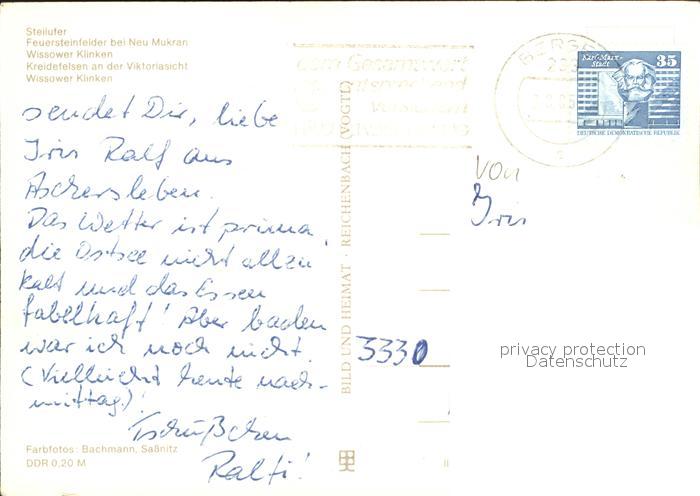 Steilufer
Feuersteinfelder bei Neu Mukran
Wissower Klinken
Kreidefelsen an der Viktoriasicht
Wissower Klinken
sendet Dir, liebe
Iris Ralf aus
Aschersleben.
Das Wetter ist prima,
die Ostsee nicht allzu
kalt und das Essen
fabelhaft! Aber baden
war ich noch nicht.
(Vielleicht heute nach-
mittag.)!
Tschüßchen
Ralfi!
Farbfotos: Bachmann, Saßnitz
DDR 0,20 M
BILD UND HEIMAT · REICHENBACH (VOGTL)
dem Gesamtwort
BERGEN
Karl-Marx-
Stadt
35
DEUTSCHE DEMOKRATISCHE REPUBLIK
von
Iris
3330
privacy protection
Datenschutz